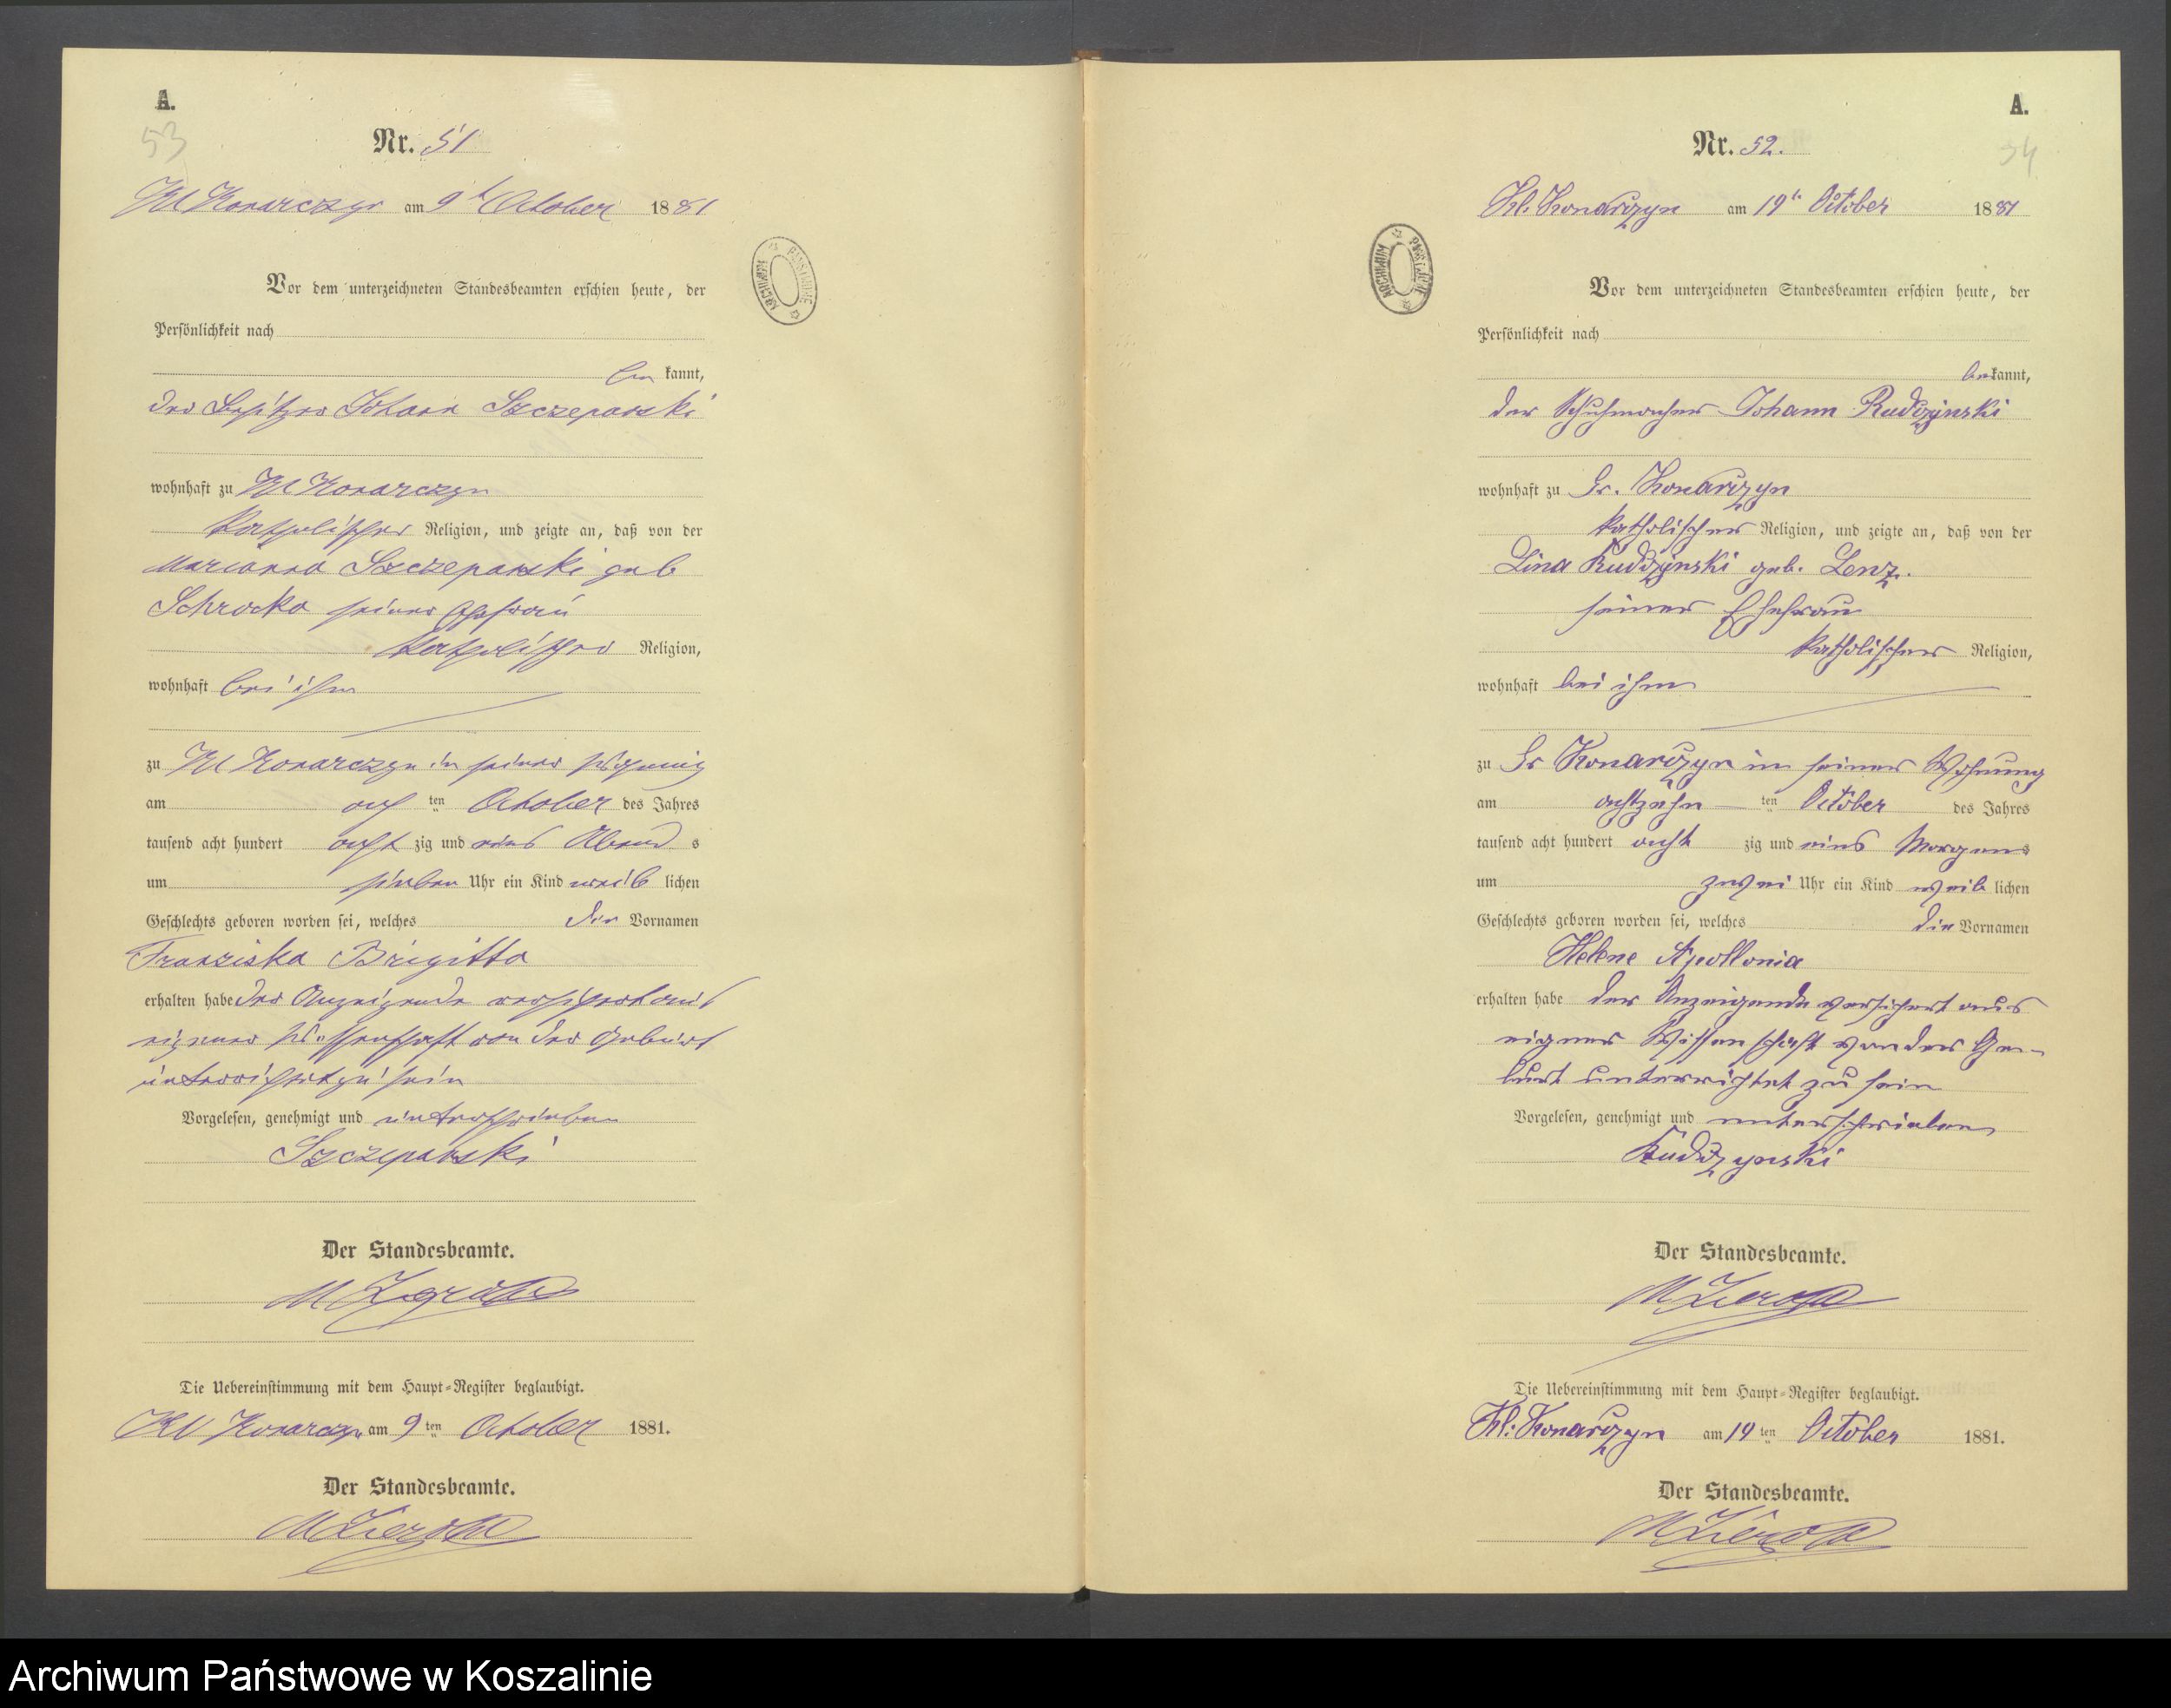 A.
53
Nr. 51
Kl Konarczyn am 9t October 1881
ARCHIWUM PAŃSTWOWE
Vor dem unterzeichneten Standesbeamten erschien heute, der
Persönlichkeit nach
be kannt,
der Besitzer Johann Szczepanski
wohnhaft zu Kl Konarczyn
katholischer Religion, und zeigte an, daß von der
Marianna Szczepanski geb
Schrocka seiner Ehefrau
katholischer Religion,
wohnhaft bei ihm
zu Kl Konarczyn in seiner Wohnung
am ach ten October des Jahres
tausend acht hundert acht zig und eins Abend s
um sieben Uhr ein Kind weib lichen
Geschlechts geboren worden sei, welches die Vornamen
Franziska Brigitta
erhalten habe der Anzeigende versichert aus
eigener Wissenschaft von der Geburt
unterrichtet zu sein
Vorgelesen, genehmigt und unterschrieben
Szczepanski
Der Standesbeamte.
Die Uebereinstimmung mit dem Haupt-Register beglaubigt.
Kl Konarczyn am 9 ten October 1881.
Der Standesbeamte.
A.
54
Nr. 52.
Kl. Konarczyn am 19t October 1881
ARCHIWUM PAŃSTWOWE
Vor dem unterzeichneten Standesbeamten erschien heute, der
Persönlichkeit nach
be kannt,
der Schuhmacher Johann Rudczynski
wohnhaft zu Gr. Konarczyn
katholischer Religion, und zeigte an, daß von der
Lina Rudczynski geb. Lenz.
seiner Ehefrau
katholischer Religion,
wohnhaft bei ihm
zu Gr Konarczyn in seiner Wohnung
am achtzehn ten October des Jahres
tausend acht hundert acht zig und eins Morgens
um zwei Uhr ein Kind weib lichen
Geschlechts geboren worden sei, welches die Vornamen
Helene Apollonia
erhalten habe der Anzeigende versichert aus
eigner Wissenschaft von der Ge-
burt unterrichtet zu sein
Vorgelesen, genehmigt und unterschrieben
Rudczynski
Der Standesbeamte.
Die Uebereinstimmung mit dem Haupt-Register beglaubigt.
Kl: Konarczyn am 19 ten October 1881.
Der Standesbeamte.
Archiwum Państwowe w Koszalinie